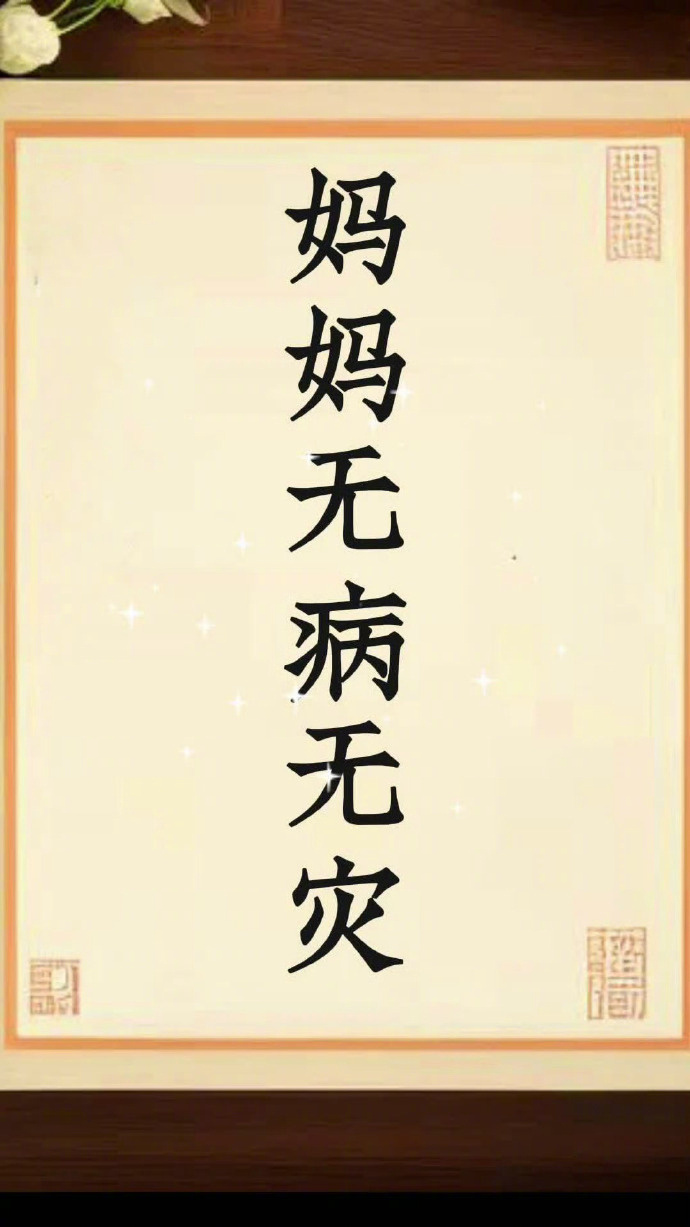 妈妈无病无灾